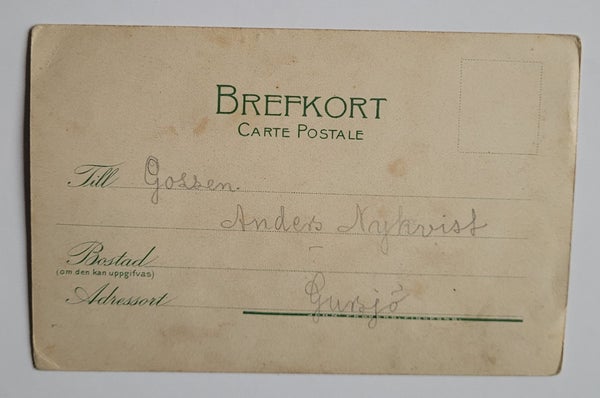 BREFKORT
CARTE POSTALE
Till Gossen.
Anders Nykvist
Bostad
(om den kan uppgifvas)
Adressort Gursjö